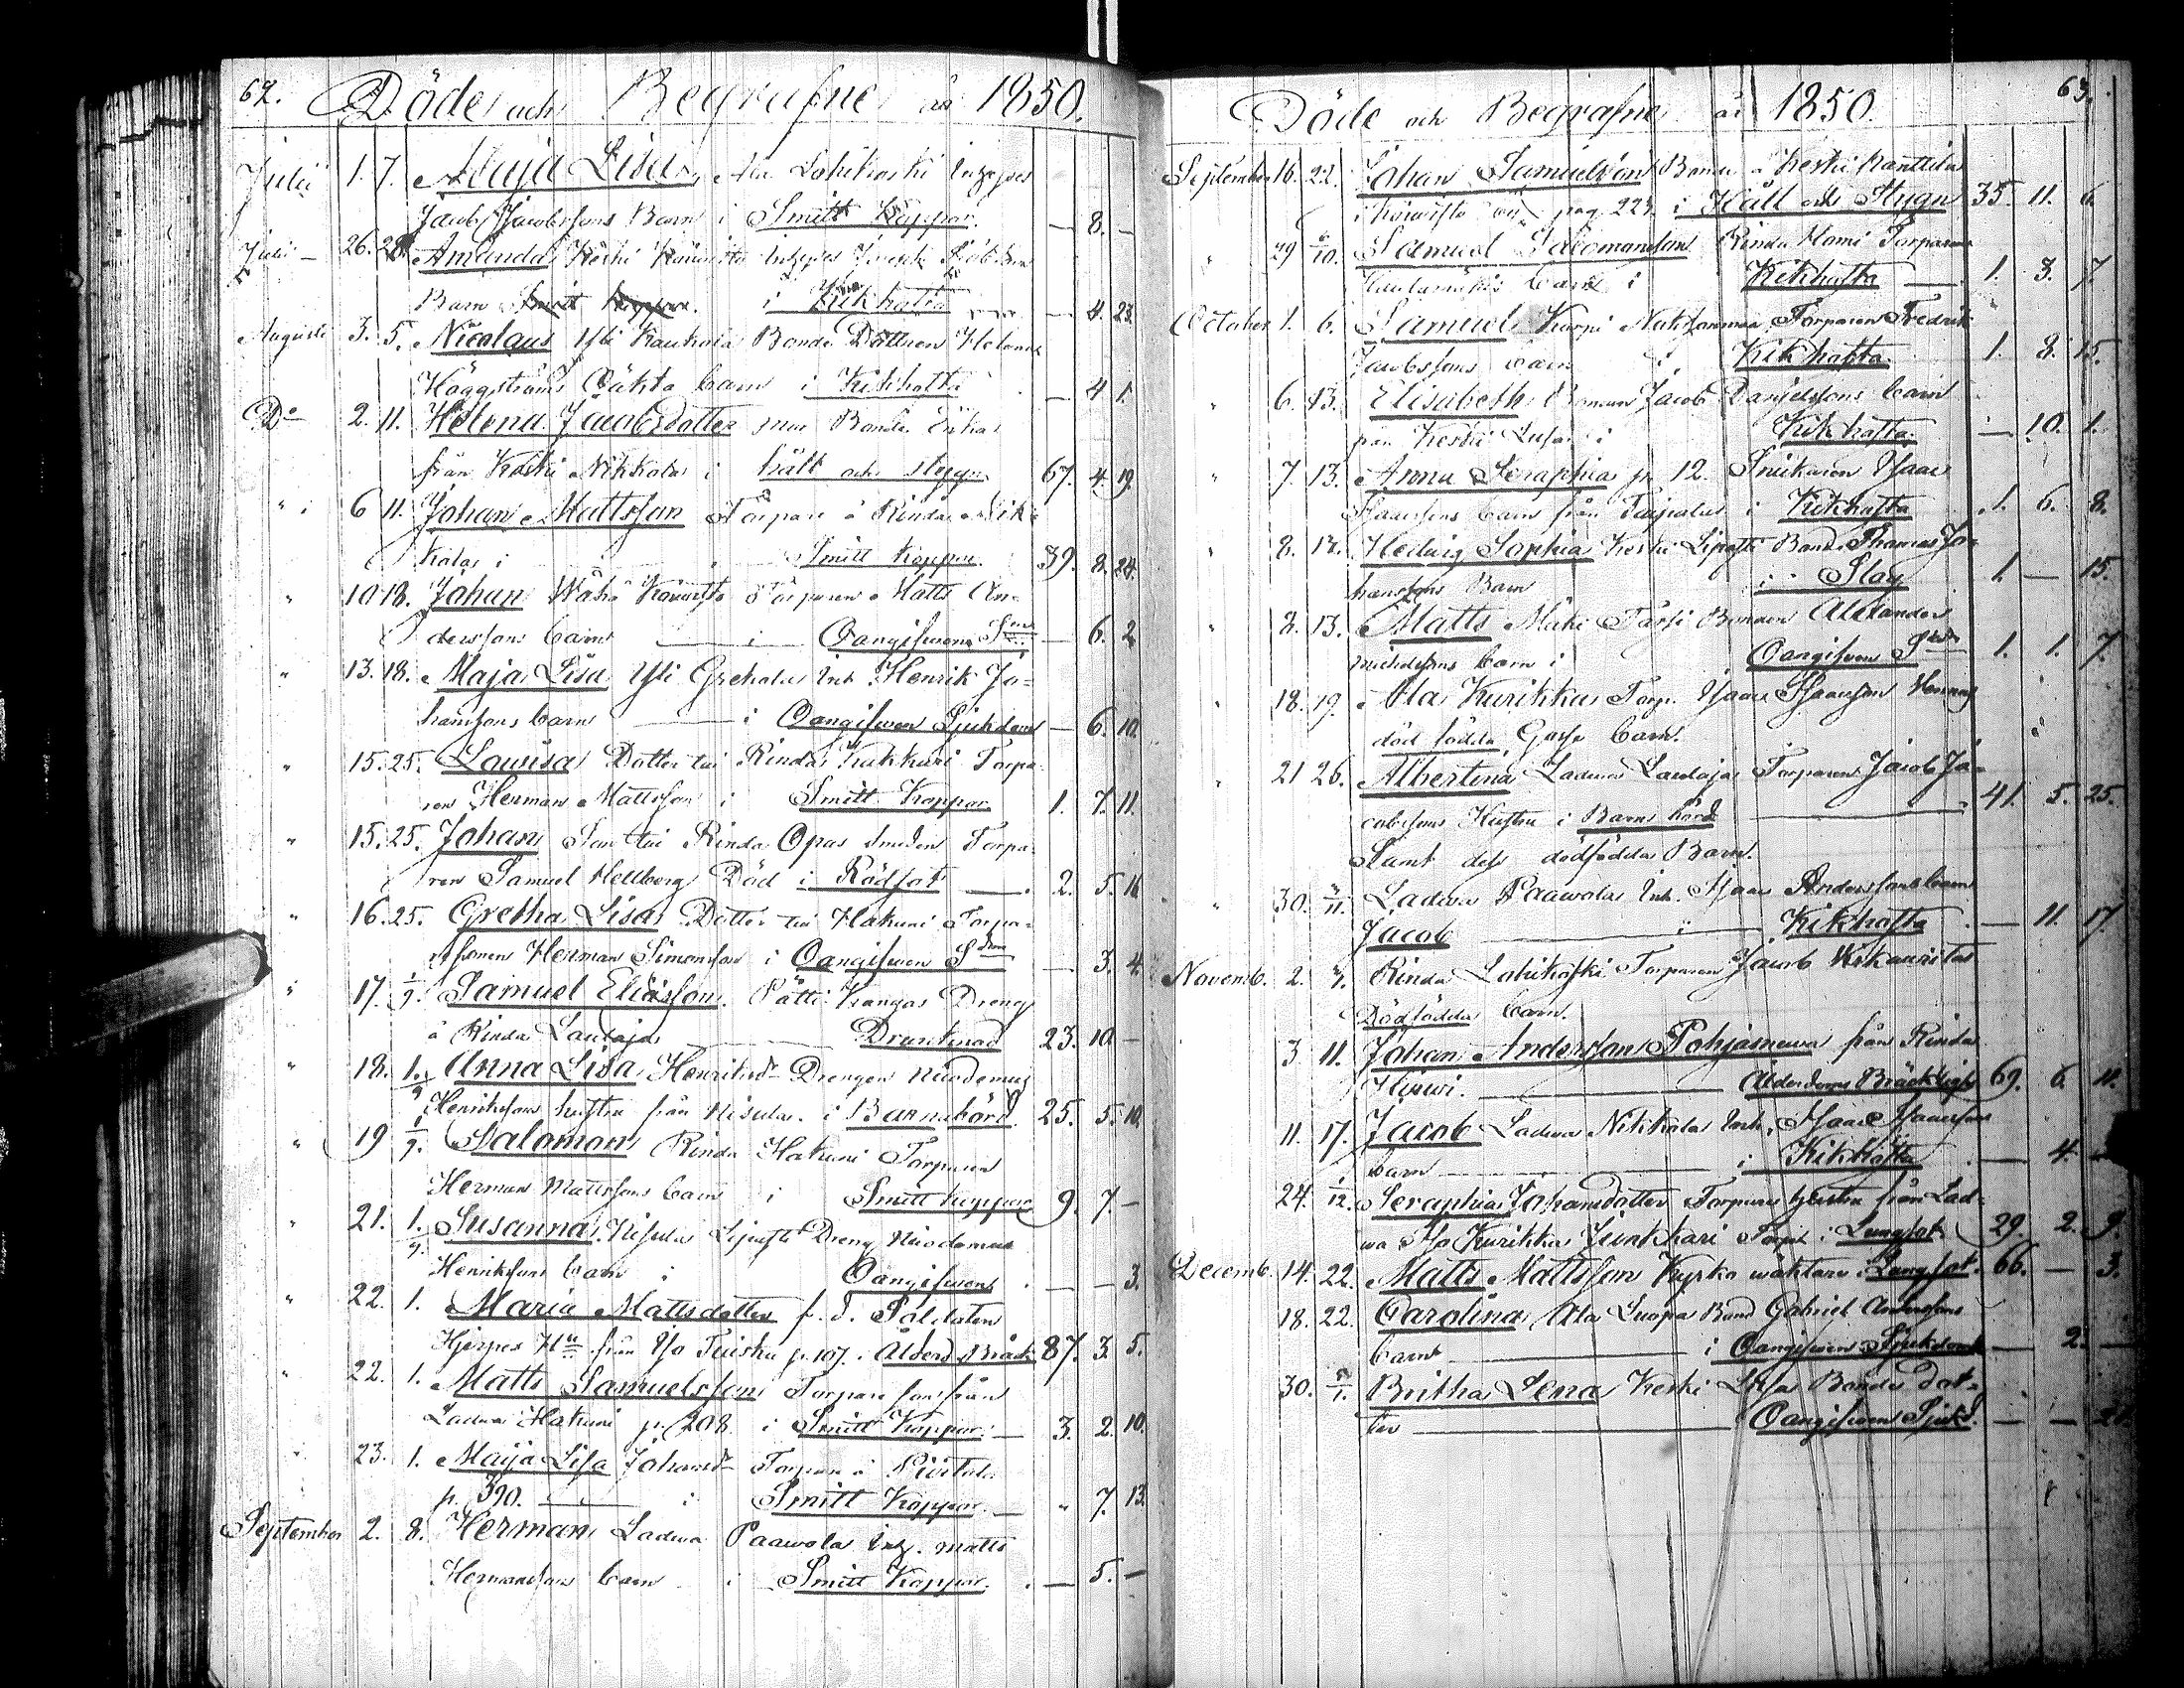 62. Döde och Begrafne år 1850.
Julii 1. 7. Maja Lisa, Ala Lohikoski Inhyses
Jacob Jacobssons Barn i Smitt Koppor. — 8. —
Julii 26. 28. Amanda Keski Inhyses
Barn i Kikhosta — 4. 23.
Augusti 3. 5. Nicolaus Yli Kauhola Bonde Dottren Helena
Häggströms Oäkta barn i Kikhosta — 4. 1.
Do 2. 11. Helena Jacobsdotter Bonde Enka
från Keski Nikkola i håll och stygn. 67. 4. 19.
6 11. Johan Mattsson Torpare å Rinda Nik-
kola i Smitt Koppor. 39. 8. 24.
10 18. Johan Wähä Torparen Matts An-
derssons barn — i — Oangifwen — 6. 2
13. 18. Maja Lisa Yli Grekola Inh. Henrik Jo-
hanssons barn — i Oangifwen Sjukdom — 6. 10.
15. 25. Lowisa Dotter till Rinda Kukkuri Torpa-
ren Herman Mattsson i Smitt Koppor 1. 7. 11.
15. 25. Johan Son till Rinda Opas Torpa-
ren Samuel Hellberg Död i Rödsot — 2. 5. 16
16. 25. Gretha Lisa Dotter till Hakuni Torpa-
Herman Simonsson i Oangifwen — 3. 4.
17. 1/9. Samuel Eliasson Pätti Kangas Dreng
å Rinda Laulaja Drunknad 23. 10. —
18. 1/9 Anna Lisa Henriksdr Drengen Nicodemus
Henrikssons hustru från Nisula i Barnsbörd 25. 5. 10.
19 1/9. Salomon Rinda Hakuni Torparen
Herman Mattssons barn i Smitt koppor 9. 7. —
21. 1/9. Susanna, Nisula Dreng Nicodemus
Henrikssons barn i Oangifwen — — 3.
22. 1. Maria Mattsdotter f. d. Soldaten
Hjerpes från p. 107. i Ålderd. Bräck 87. 3. 5.
22. 1. Matts Samuelsson Torpare son från
Ladwa Hakuni p. 208. i Smitt Koppor. — 3. 2. 10.
23. 1. Maija Lisa Johansdr
p. 390. — i Smitt Koppor — 7. 13.
September 2. 8. Herman Ladwa Paawola Inh. Matts
Hermanssons barn i Smitt Koppor. — 5. —
Döde och Begrafne år 1850. 63.
September 16. 22. Johan Samuelsson Bonde å Keski Kanttila
pag. 223. i Håll och Stygn 35. 11. 6.
29 6/10. Samuel Salomonsson Rinda Torparen
barn i Kikhosta — 1. 3. 7.
October 1. 6. Samuel Korpi Torparen Fredrik
Jacobssons barn i Kikhosta. 1. 8. 15.
6. 13. Elisabeth Bonden Jacob Danjelssons barn
från Keski i Kikhosta — 10. 1.
7. 13. Anna Seraphia p. 12. Snickaren Isaac
Isaacssons barn från i Kikhosta 1. 6. 8.
8. 13. Hedwig Sophia Keski Bond. Thomas Jo-
hanssons Barn i Slag 1. — 15.
8. 13. Matts Mäki Bonden Alexander
Michelssons barn i Oangifwen 1. 1. 7.
18. 19. Ala Kurikka Torp. Isaac Isaacsson
död födda Gosse barn.
21 26. Albertina Ladwa Laulaja Torparen Jacob Ja-
cobssons Hustru i Barns börd — 41. 5. 25.
Samt dess dödfödda Barn.
30. 11. Ladwa Paawola Inh. Isaac Anderssons barn
Jacob — i — Kikhosta — 11. 17.
Novemb. 2. Rinda Lohikoski Torparen Jacob
Dödfödda barn.
3 11. Johan Andersson Pohjanewa från Rinda
— Alderdoms Bräcklighet 69. 6. 11.
11. 17. Jacob Ladwa Nikkola Inh. Isaac Isaacssons
barn — i Kikhosta — 4. —
24. 1/12. Seraphia Johansdotter Torpare hustru från Lad-
wa Kurikka i Lungsot 29. 2. 9.
Decemb. 14. 22. Matts Mattsson Kyrko wäktare i Lungsot. 66. — 3.
18. 22. Carolina Ala Luopa Bond Gabriel Anderssons
barn — i Oangifwen Sjukdom — 2. —
30. 1. Britha Lena Keski Bonde dot-
ter — Oangifwen Sjukd. — —